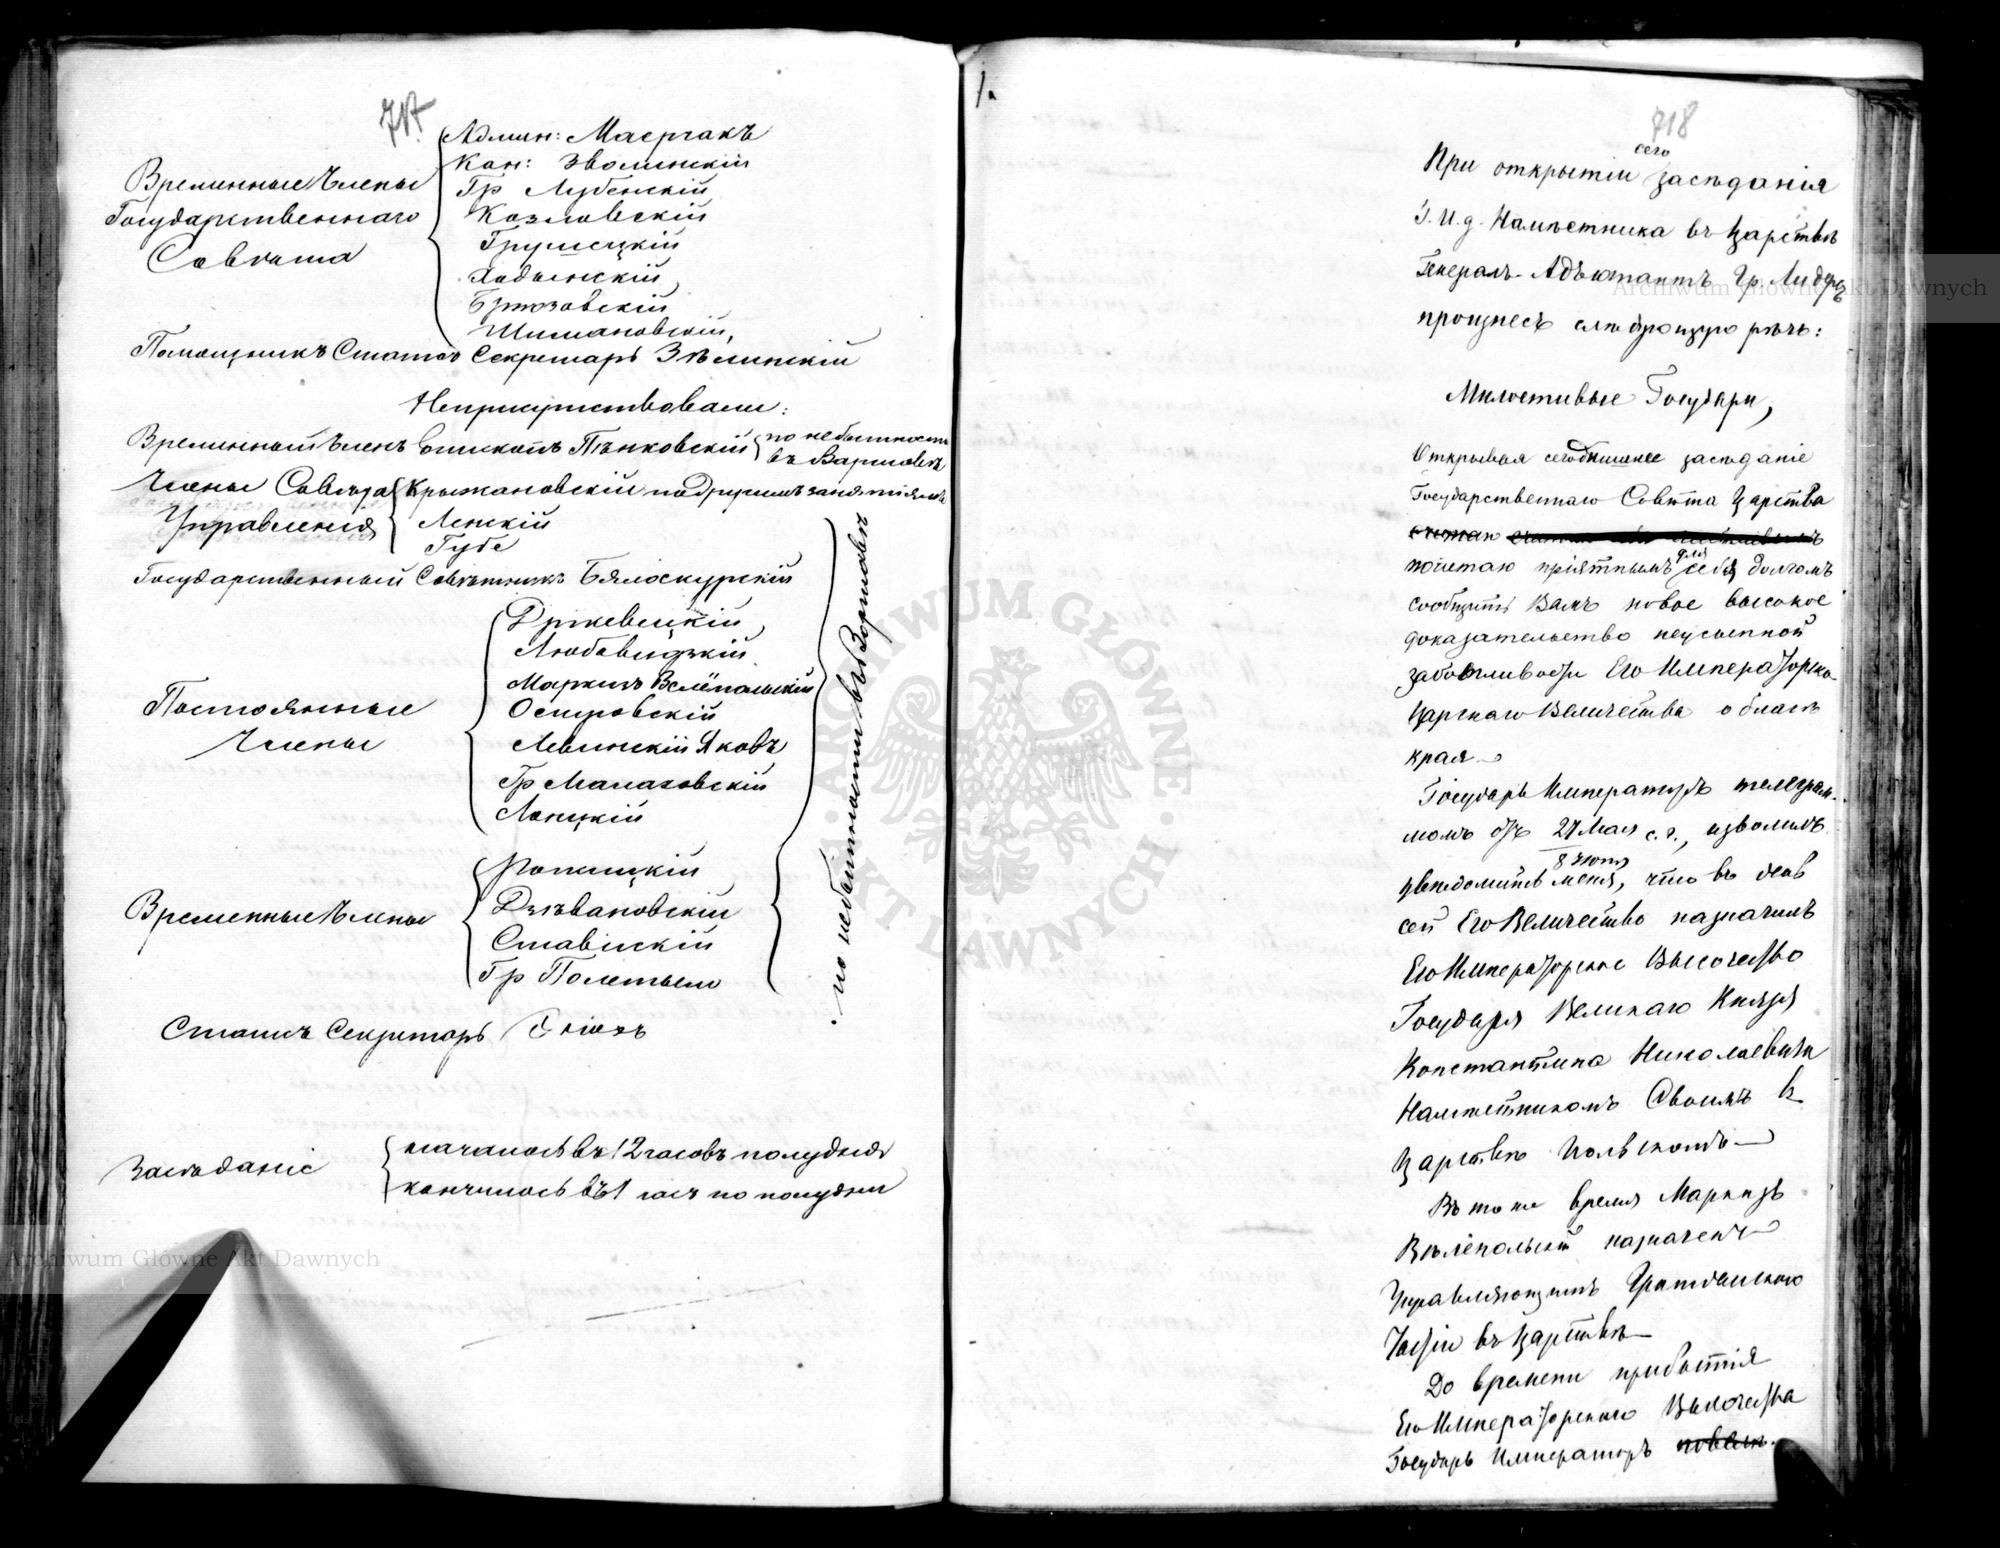 717
Временные Члены
Государственнаго
Совѣта
Админ:
Кан: Зволинскій
Гр Лубенскій
Козловскій
Грушецкій
Ходынскій
Бржозовскій
Шимановскій,
Помощникъ Статсъ Секретарь Зѣлинскій
Неприсутствовали:
Временный Членъ Епископъ Пѣнковскій по небытности
въ Варшавѣ
Члены Совѣта
Управленія
Крыжановскій по другимъ занятіямъ
Ленскій
Губе
Государственный Совѣтникъ Бялоскурскій
Постоянные
Члены
Држевецкій
Любовидзкій
Маркизъ Велёпольскій
Островскій
Левинскій Яковъ
Гр Малаховскій
Лонцкій
Временные Члены
Дзѣвановскій
Ставискій
Гр Полетыло
по небытности въ Варшавѣ
Статсъ Секретарь
Засѣданіе
началось въ 12 часовъ полудня
кончилось въ 1 часъ по полудни
1.
718
сего
При открытіи засѣданія
И. д. Намѣстника въ Царствѣ
Генералъ-Адъютантъ Гр. Лидерсъ
произнесъ слѣдующую рѣчь:
Милостивые Государи,
Открывая сегоднишнее засѣданіе
Государственнаго Совѣта Царства
для
почитаю пріятнымъ себя долгомъ
сообщить Вамъ новое высокое
доказательство неусыпной
заботливости Его Императорско-
Царскаго Величества о благѣ
края.
Государь Императоръ телеграм-
мою отъ 27 Мая с. г., изволилъ
8 Іюня
увѣдомить меня, что въ день
сей Его Величество назначилъ
Его Императорское Высочество
Государя Великаго Князя
Константина Николаевича
Намѣстникомъ Своимъ въ
Царствѣ Польскомъ
Въ то же время Маркизъ
Велёпольскій назначенъ
Управляющимъ Гражданскою
Частію въ Царствѣ
До времени прибытія
Его Императорскаго Высочества
Государь Императоръ повелѣ-
ARCHIWUM GŁÓWNE AKT DAWNYCH
Archiwum Główne Akt Dawnych
Archiwum Główne Akt Dawnych